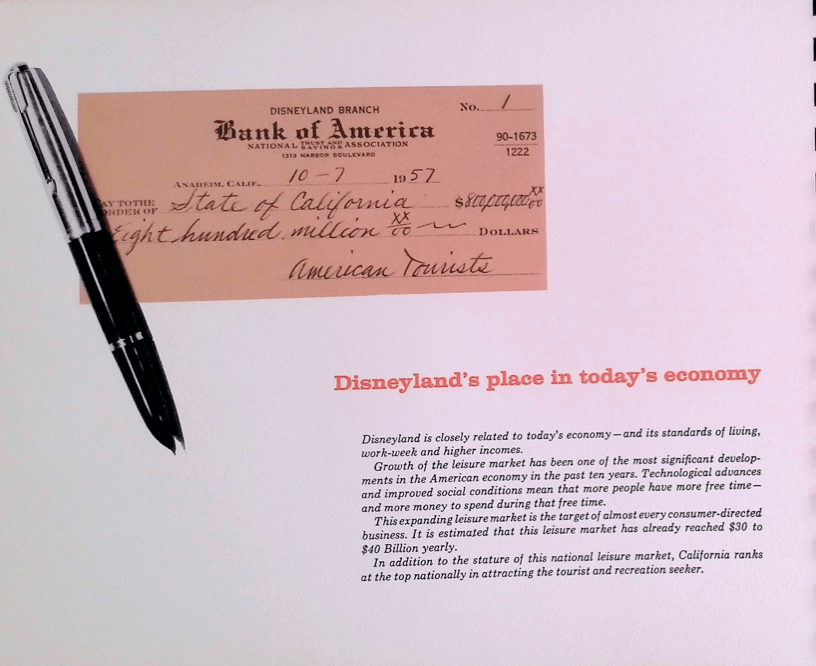 DISNEYLAND BRANCH
No. 1
Bank of America
NATIONAL TRUST AND SAVINGS ASSOCIATION
1313 HARBOR BOULEVARD
90-1673
1222
ANAHEIM, CALIF. 10-7 1957
AY TO THE
ORDER OF State of California $800,000,000 XX/00
Eight hundred million XX/00 DOLLARS
American Tourists
Disneyland's place in today's economy
Disneyland is closely related to today's economy—and its standards of living,
work-week and higher incomes.
Growth of the leisure market has been one of the most significant develop-
ments in the American economy in the past ten years. Technological advances
and improved social conditions mean that more people have more free time—
and more money to spend during that free time.
This expanding leisure market is the target of almost every consumer-directed
business. It is estimated that this leisure market has already reached $30 to
$40 Billion yearly.
In addition to the stature of this national leisure market, California ranks
at the top nationally in attracting the tourist and recreation seeker.